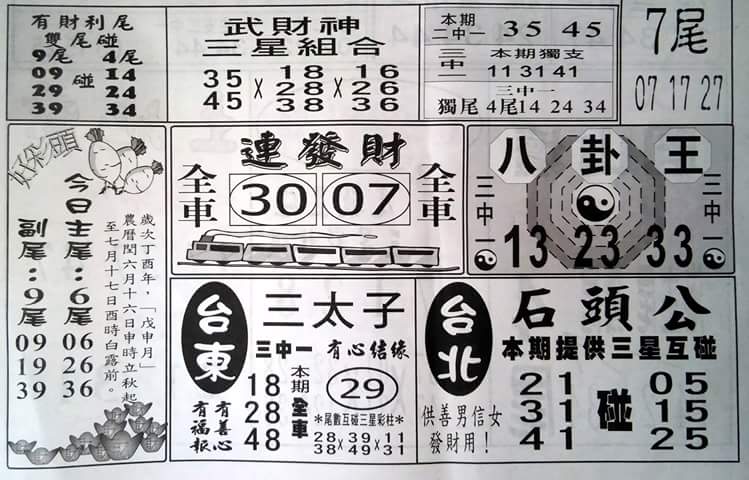 有財利尾
雙尾碰
9尾 4尾
09 碰 14
29 24
39 34
武財神
三星組合
35 18 16
× 28 × 26
45 38 36
本期
二中一 35 45
三中一 本期獨支
11 31 41
三中一
獨尾 4尾14 24 34
7尾
07 17 27
好彩頭
今日主尾：6尾
06
26
36
副尾：9尾
09
19
39
歲次丁酉年，「戊申月」
農曆閏六月十六日申時立秋起
至七月十七日酉時白露前。
連發財
全車 30 07 全車
八卦王
三中一 13 23 33 三中一
台東
三太子
三中一 有心結緣
18 本期 29
28 全車
48
有善心
有福報
＊尾數互碰三星彩柱＊
28 × 39 × 11
38 49 31
台北
石頭公
本期提供三星互碰
21 05
31 碰 15
41 25
供善男信女
發財用！